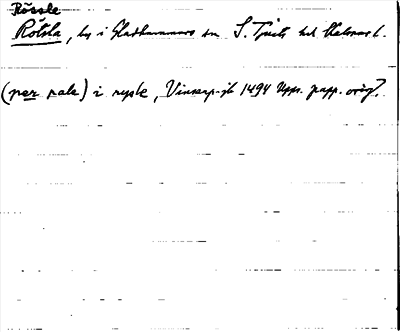 Rössle
Rössla, by i Gladhammars sn S. Tjusts hd Kalmar l.
(per rale) i rysle, 1494 Upps. papp. orig?